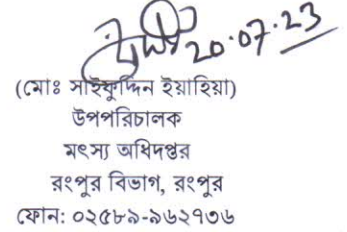 20.07.23
(মোঃ সাইফুদ্দিন ইয়াহিয়া)
উপপরিচালক
মৎস্য অধিদপ্তর
রংপুর বিভাগ, রংপুর
ফোন: ০২৫৮৯-৯৬২৭৩৬